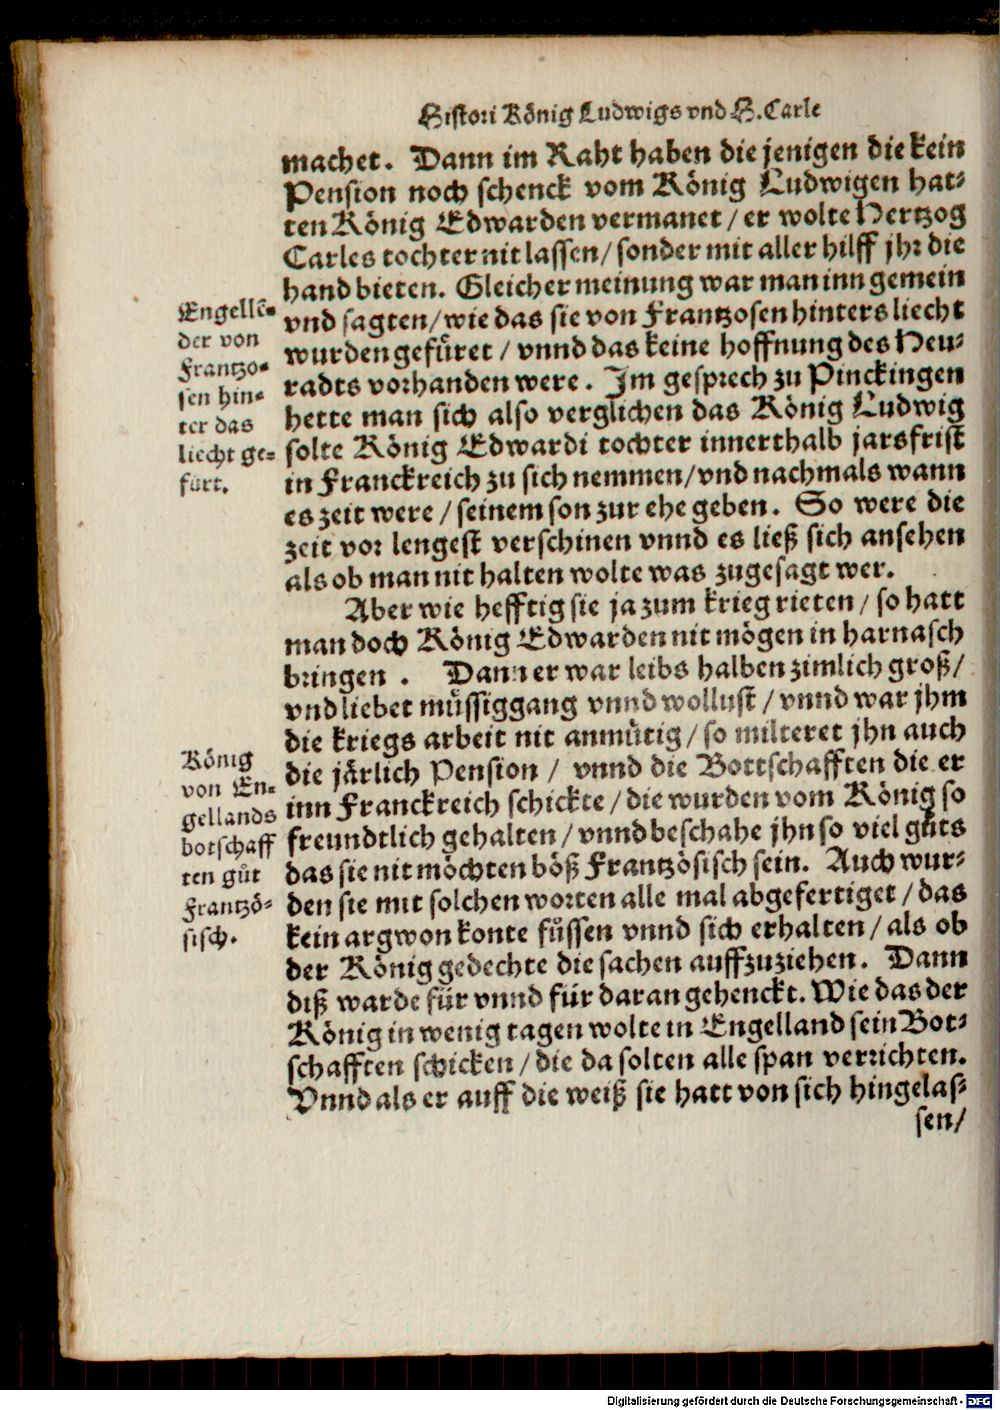 Histori König Ludwigs vnd H. Carle
machet. Dann im Raht haben die jenigen die kein
Pension noch schenck vom König Ludwigen hat-
ten König Edwarden vermanet / er wolte Hertzog
Carles tochter nit lassen / sonder mit aller hilff jhr die
hand bieten. Gleicher meinung war man inn gemein
vnd sagten / wie das sie von Frantzosen hinters liecht
wurden gefüret / vnnd das keine hoffnung des Heu-
radts vorhanden were. Im gesprech zu Pinckingen
hette man sich also verglichen das König Ludwig
solte König Edwardi tochter innerthalb jarsfrist
in Franckreich zu sich nemmen / vnd nachmals wann
es zeit were / seinem son zur ehe geben. So were die
zeit vor lengest verschinen vnnd es ließ sich ansehen
als ob man nit halten wolte was zugesagt wer.
Engellē-
der von
Frantzo-
sen hin-
ter das
liecht ge-
fürt.
Aber wie hefftig sie ja zum krieg rieten / so hatt
man doch König Edwarden nit mögen in harnasch
bringen. Dann er war leibs halben zimlich groß /
vnd liebet müssiggang vnnd wollust / vnnd war jhm
die kriegs arbeit nit anmütig / so milteret jhn auch
die järlich Pension / vnnd die Bottschafften die er
inn Franckreich schickte / die wurden vom König so
freundtlich gehalten / vnnd beschahe jhn so viel gůts
das sie nit möchten böß Frantzösisch sein. Auch wur-
den sie mit solchen worten alle mal abgefertiget / das
kein argwon konte füssen vnnd sich erhalten / als ob
der König gedechte die sachen auffzuziehen. Dann
diß warde für vnnd für daran gehenckt. Wie das der
König in wenig tagen wolte in Engelland sein Bot-
schafften schicken / die da solten alle span verrichten.
Vnnd als er auff die weiß sie hatt von sich hingelas-
sen /
König
von En-
gellands
botschaff
ten gůt
Frantzö-
sisch.
Digitalisierung gefördert durch die Deutsche Forschungsgemeinschaft - DFG